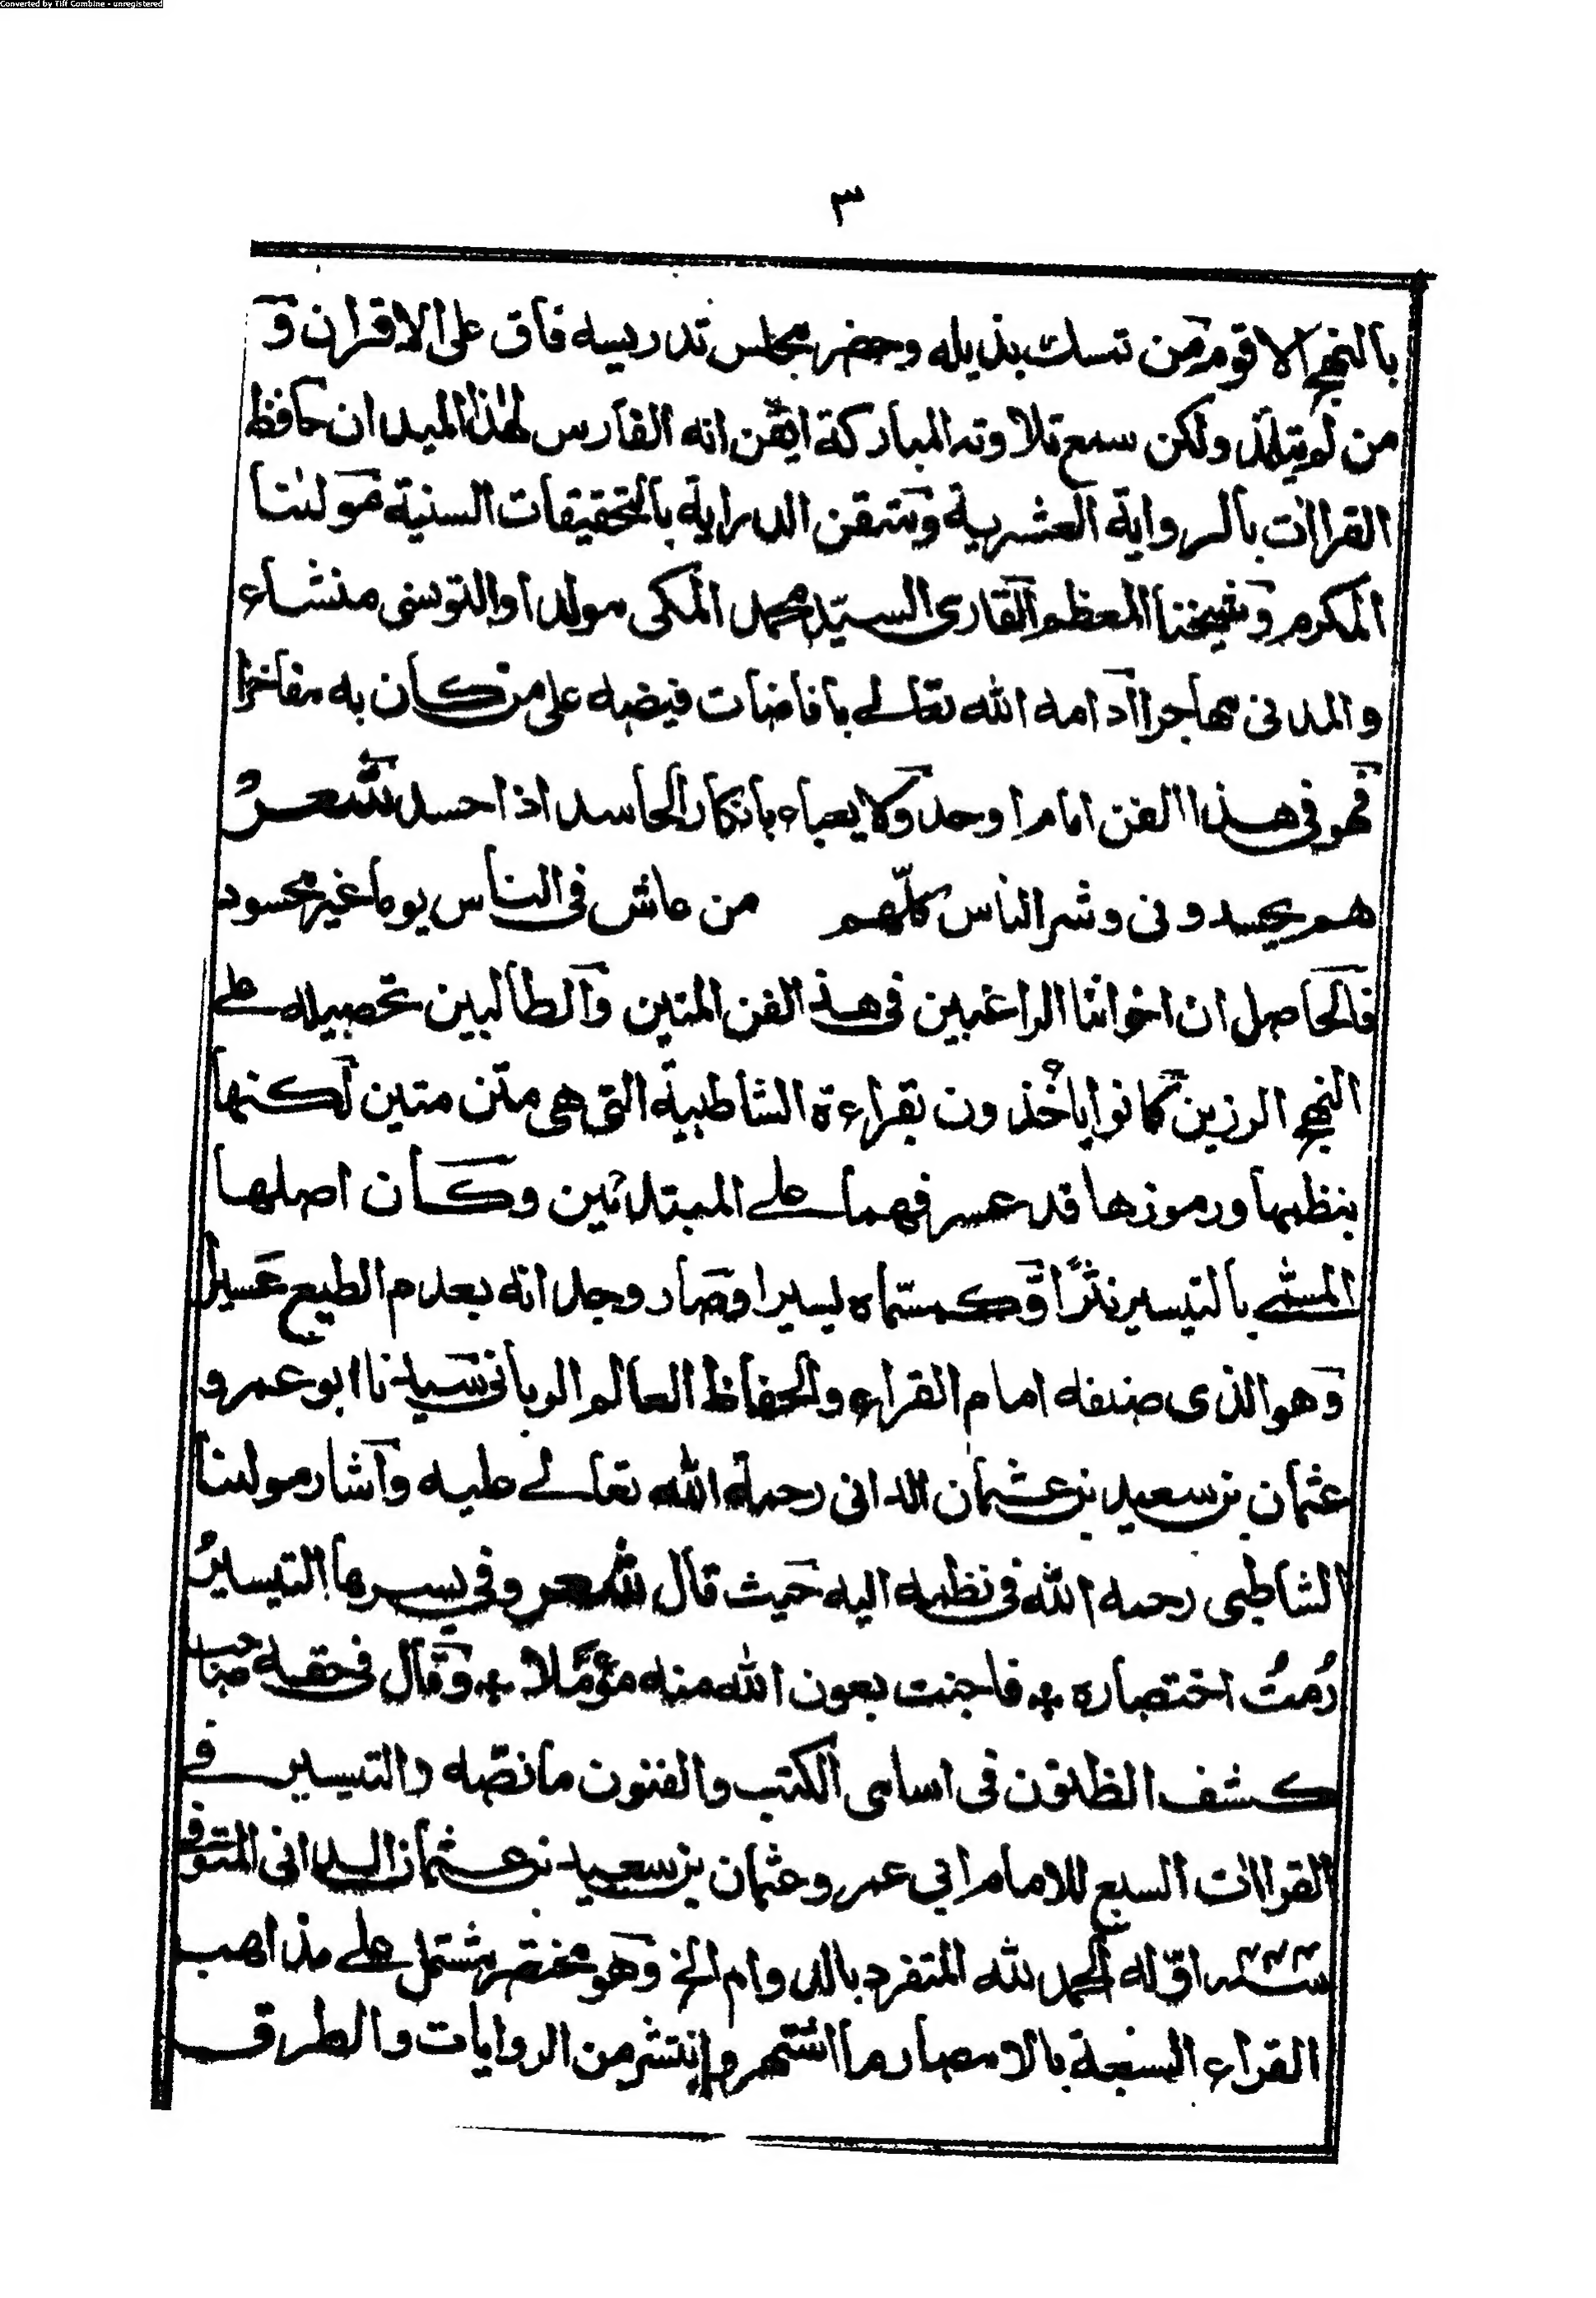 Converted by Tiff Combine - unregistered
٣
بالنهج الاقوم من تمسك بذيله وحضر مجلس تدريسه فاق على الاقران و
من لم يتلمذ ولكن سمع تلاوته المباركة ايقن انه الفارس لهذا الميدان حافظ
القراات بالرواية العشرية ومتقن الدراية بالتحقيقات السنية مولٰنا
المكرم وشيخنا المعظم القارى السيد محمد المكى مولدا والتونسى منشاء
والمدنى مهاجرا ادامه الله تعالے بافاضات فيضه على من كان به مفاخرا
فهو فى هذا الفن امام اوحد ولا يعباء بانكار الحاسد اذا حسد شعرٌ
هم يحسدونى وشر الناس كلّهم من عاش فى الناس يوما غير محسود
فالحاصل ان اخواننا الراغبين فى هذ الفن المتين والطالبين تحصيله علے
النهج الرزين كانوا ياخذون بقراءة الشاطبية التى هى متن متين لكنها
بنظمها ورموزها قد عسر فهما علے المبتدئين وكان اصلها
المسمّے بالتيسير نثرًا وكمسمّاه يسيرا وصار وجدانه بعدم الطبع عسيرا
وهو الذى صنفه امام القراء والحفاظ العالم الربانى سيدنا ابو عمرو
عثمان بن سعيد بن عثمان الدانى رحمة الله تعالے عليه واشار مولٰنا
الشاطبى رحمه الله فى نظمه اليه حيث قال شعر وفى يسرها التيسيرُ
رُمتُ اختصاره ۞ فاجنت بعون الله منه مؤمّلا ۞ وقال فى حقه صاحب
كشف الظنون فى اسامى الكتب والفنون ما نصّه والتيسير فے
القراات السبع للامام ابي عمرو عثمان بن سعيد بن عثمان الدانى المتوفے
اوّله الحمد لله المتفرد بالدوام الخ وهو مختصر مشتمل علے مذاهب
القراء السبعة بالامصار وما اشتهر وانتشر من الروايات والطرق